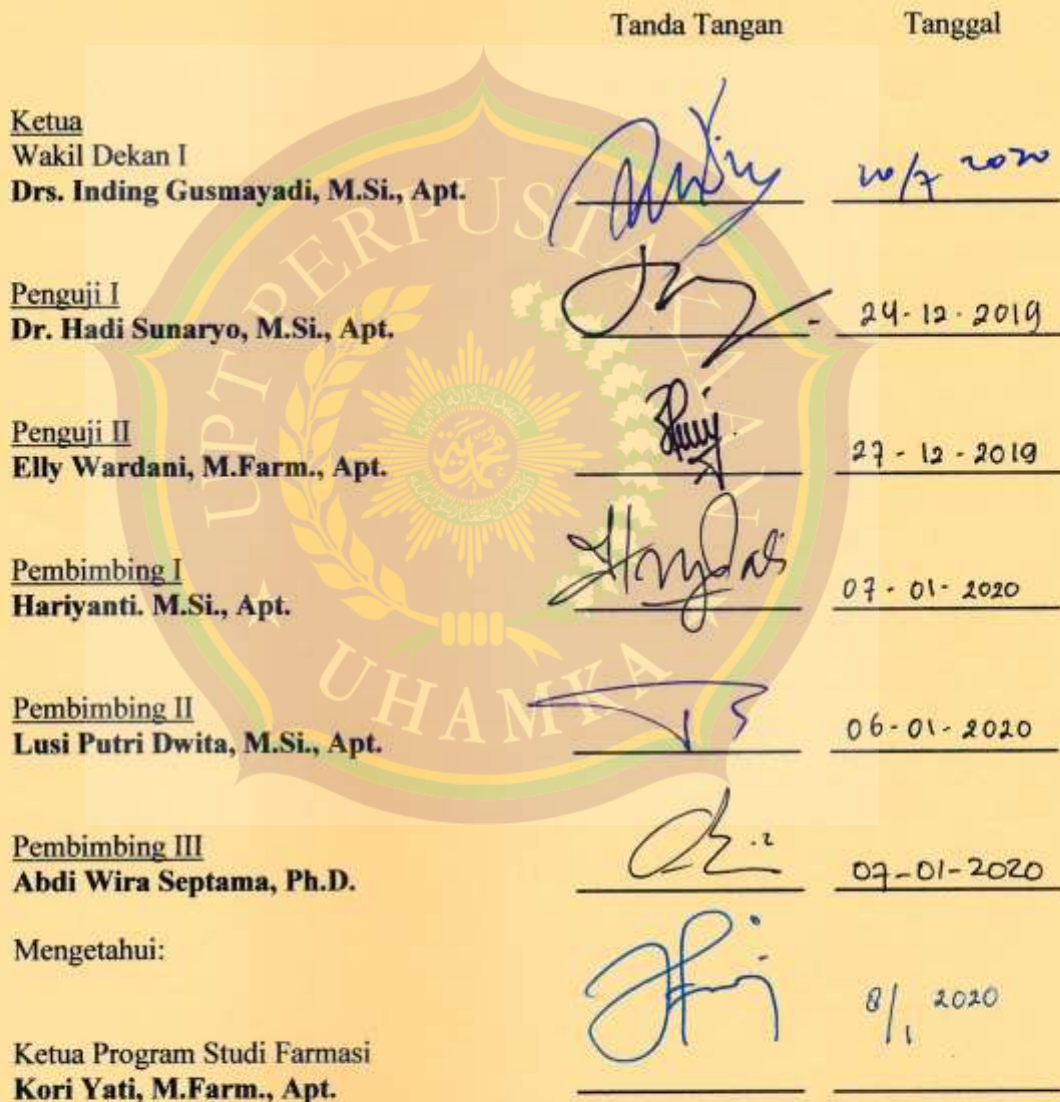 Tanda Tangan Tanggal
Ketua
Wakil Dekan I
Drs. Inding Gusmayadi, M.Si., Apt.
2020
Penguji I
Dr. Hadi Sunaryo, M.Si., Apt.
24-12-2019
Penguji II
Elly Wardani, M.Farm., Apt.
27-12-2019
Pembimbing I
Hariyanti. M.Si., Apt.
07-01-2020
Pembimbing II
Lusi Putri Dwita, M.Si., Apt.
06-01-2020
Pembimbing III
Abdi Wira Septama, Ph.D.
07-01-2020
Mengetahui:
8/1 2020
Ketua Program Studi Farmasi
Kori Yati, M.Farm., Apt.
UPT PERPUSTAKAAN
UHAMKA